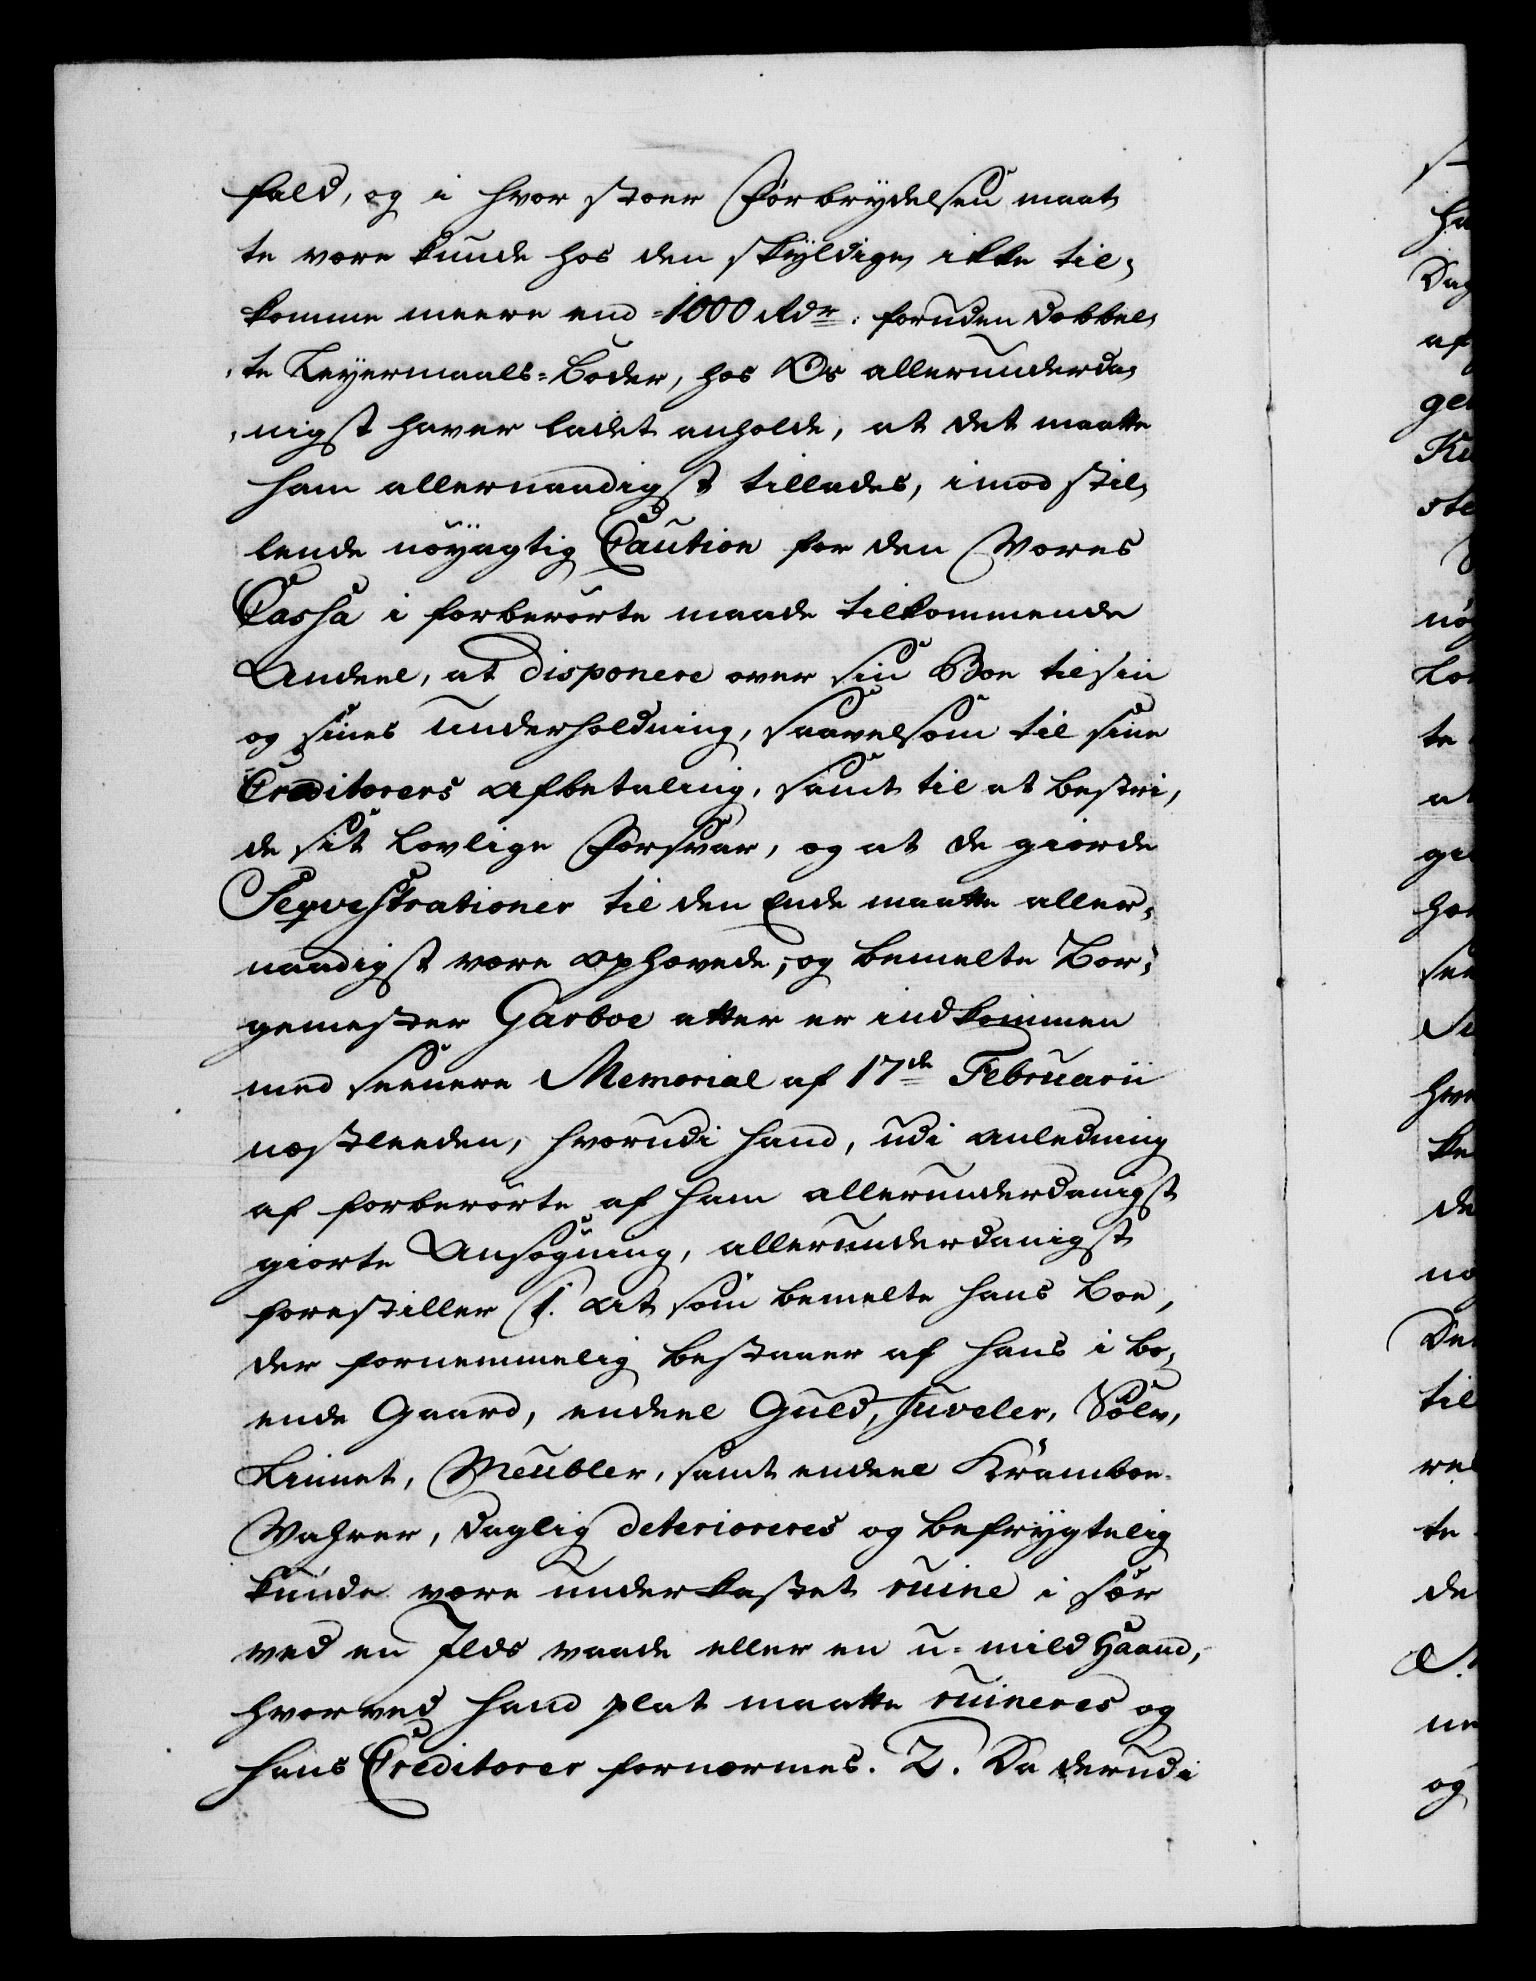 fald, og i hvor stoer Forbrydelsen maat
te være kunde hos den skyldige, ikke til,
komme meere end 1000 Rdr. foruden dobbel,
te Leyermaals-Bøder, hos Os allerunderda,
nigst haver ladet anholde, at det maatte
ham allernaadigst tillades, imod stil,
lende nöyagtig Caution for den Vores
Cassa i forberørte maade tilkommende
Andeel, at disponere over sin Boe til sin
og sines underholdning, saavelsom til sine
Creditorers afbetaling, samt til at bestri,
de sit lovlige Forsvar, og at de giorde
Seqvestrationer til den Ende maatte aller,
naadigst være ophævede; og bemelte Bor,
gemester Garboe atter er indkommen
med seenere Memorial af 17de Februarii
næstleeden, hvorudi hand, udi anledning
af forberørte af ham allerunderdanigst
giorte Ansøgning, allerunderdanigst
forestiller 1. At som bemelte hans Boe,
der fornemmelig bestaaer af hans i bo,
ende Gaard, endeel Guld, Juveler, Sølv,
Linnet, Meubler, samt endeel Kramboe-
Vahrer, daglig deterioreres og befrygtelig
kunde være underkastet ruine i sær
ved en Ilds vaade eller en u-mild Haand,
hvorved hand plat maatte ruineres og
hans Creditorer fornærmes. 2. Da derudi